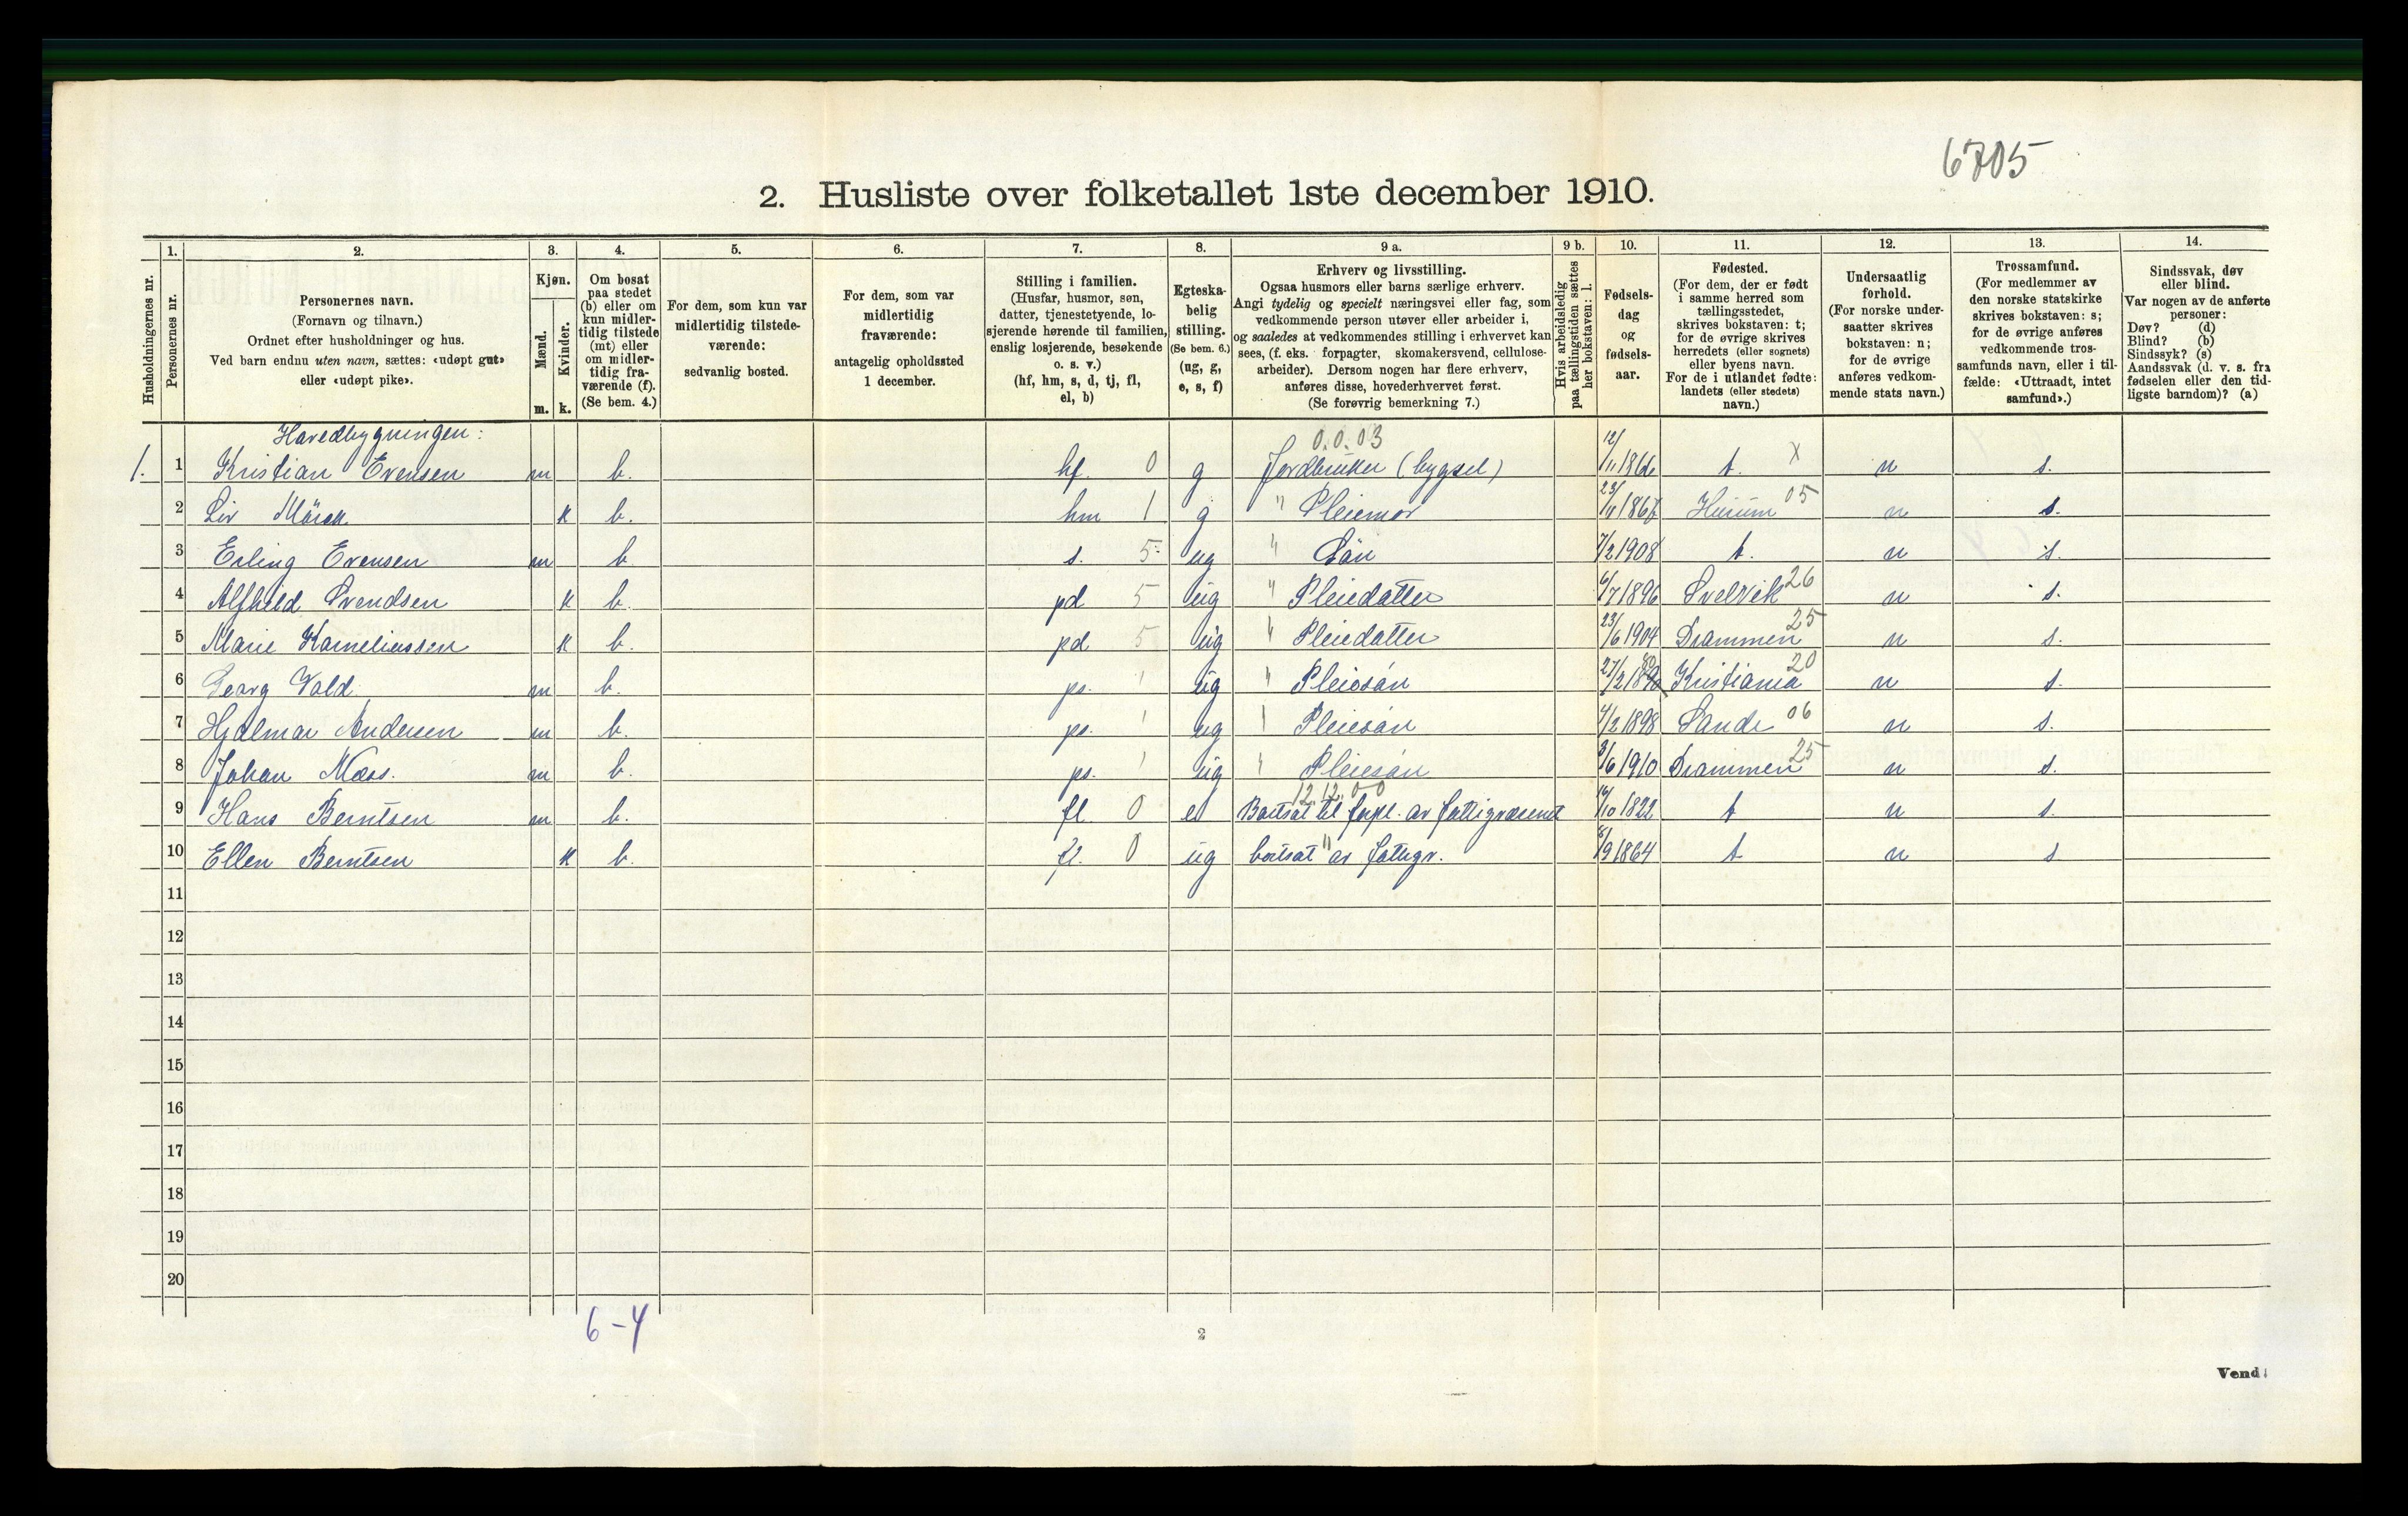 6705
2. Husliste over folketallet 1ste december 1910.
Husholdningernes nr.
1.
Personernes nr.
2.
Personernes navn.
(Fornavn og tilnavn.)
Ordnet efter husholdninger og hus.
Ved barn endnu uten navn, sættes: «udøpt gut»
eller «udøpt pike».
3.
Kjøn.
Mænd.
Kvinder.
m. k.
4.
Om bosat
paa stedet
(b) eller om
kun midler-
tidig tilstede
(mt) eller
om midler-
tidig fra-
værende (f).
(Se bem. 4.)
5.
For dem, som kun var
midlertidig tilstede-
værende:
sedvanlig bosted.
6.
For dem, som var
midlertidig
fraværende:
antagelig opholdssted
1 december.
7.
Stilling i familien.
(Husfar, husmor, søn,
datter, tjenestetyende, lo-
sjerende hørende til familien,
enslig losjerende, besøkende
o. s. v.)
(hf, hm, s, d, tj, fl,
el, b)
8.
Egteska-
belig
stilling.
(Se bem. 6.)
(ug, g,
e, s, f)
9 a.
Erhverv og livsstilling.
Ogsaa husmors eller barns særlige erhverv.
Angi tydelig og specielt næringsvei eller fag, som
vedkommende person utøver eller arbeider i,
og saaledes at vedkommendes stilling i erhvervet kan
sees, (f. eks. forpagter, skomakersvend, cellulose-
arbeider). Dersom nogen har flere erhverv,
anføres disse, hovederhvervet først.
(Se forøvrig bemerkning 7.)
9 b.
Hvis arbeidsledig
paa tællingstiden sættes
her bokstaven: l.
10.
Fødsels-
dag
og
fødsels-
aar.
11.
Fødested.
(For dem, der er født
i samme herred som
tællingsstedet,
skrives bokstaven: t;
for de øvrige skrives
herredets (eller sognets)
eller byens navn.
For de i utlandet fødte:
landets (eller stedets)
navn.)
12.
Undersaatlig
forhold.
(For norske under-
saatter skrives
bokstaven: n;
for de øvrige
anføres vedkom-
mende stats navn.)
13.
Trossamfund.
(For medlemmer av
den norske statskirke
skrives bokstaven: s;
for de øvrige anføres
vedkommende tros-
samfunds navn, eller i til-
fælde: «Uttraadt, intet
samfund».)
14.
Sindssvak, døv
eller blind.
Var nogen av de anførte
personer:
Døv? (d)
Blind? (b)
Sindssyk? (s)
Aandssvak (d. v. s. fra
fødselen eller den tid-
ligste barndom)? (a)
Hovedbygningen:
0.0.03
1. 1 Kristian Evensen m b. hf. 0 g Jordbruker (bygsel) 12/11 1866 t. x n s.
2 Liv k b. hm 1 g " Pleiemor 23/11 Hurum 05 n s.
3 Erling Evensen m b. s. 5 ug " Sön 7/2 1908 t. n s.
4 Alfhild Svendsen k b. pd 5 ug " Pleiedatter 6/7 1896 Svelvik 26 n s.
5 Marie Korneliussen k b. pd 5 ug " Pleiedatter 23/6 1904 Drammen 25 n s.
6 Georg Vold m b. ps. 1 ug " Pleiesön 27/2 Kristiania 20 n s.
7 Hjalmar Andersen m b. ps. 1 ug " Pleiesön 4/2 1898 Sande 06 n s.
8 Johan Næss. m b. ps. 1 ug " Pleiesön 3/6 1910 Drammen 25 n s.
12.12.00
9 Hans Berntsen m b. fl 0 e Bortsat til forpl. av fattigvæsenet 16/10 1822 t n s.
10 Ellen Berntsen k b. fl. 0 ug bortsat " av fattigv. 8/9 1864 t n s
11
12
13
14
15
16
17
18
19
20
6-4
2
Vend!